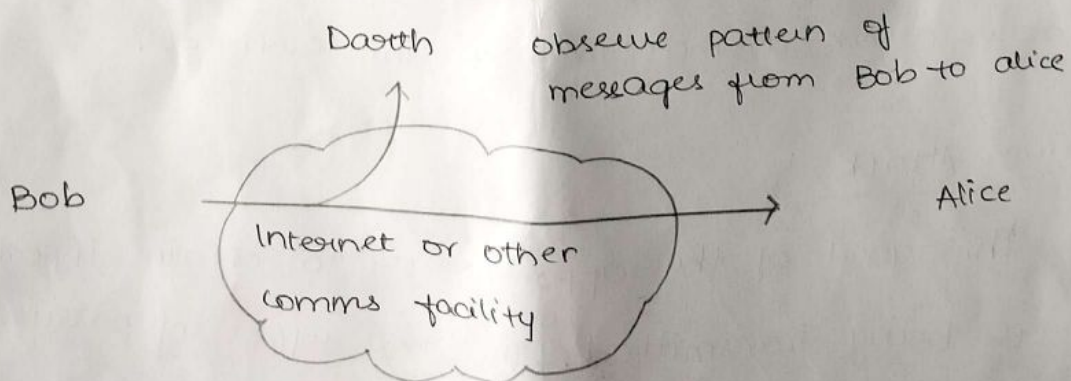 Darth
observe pattern of
messages from Bob to alice
Bob
Alice
Internet or other
comms facility